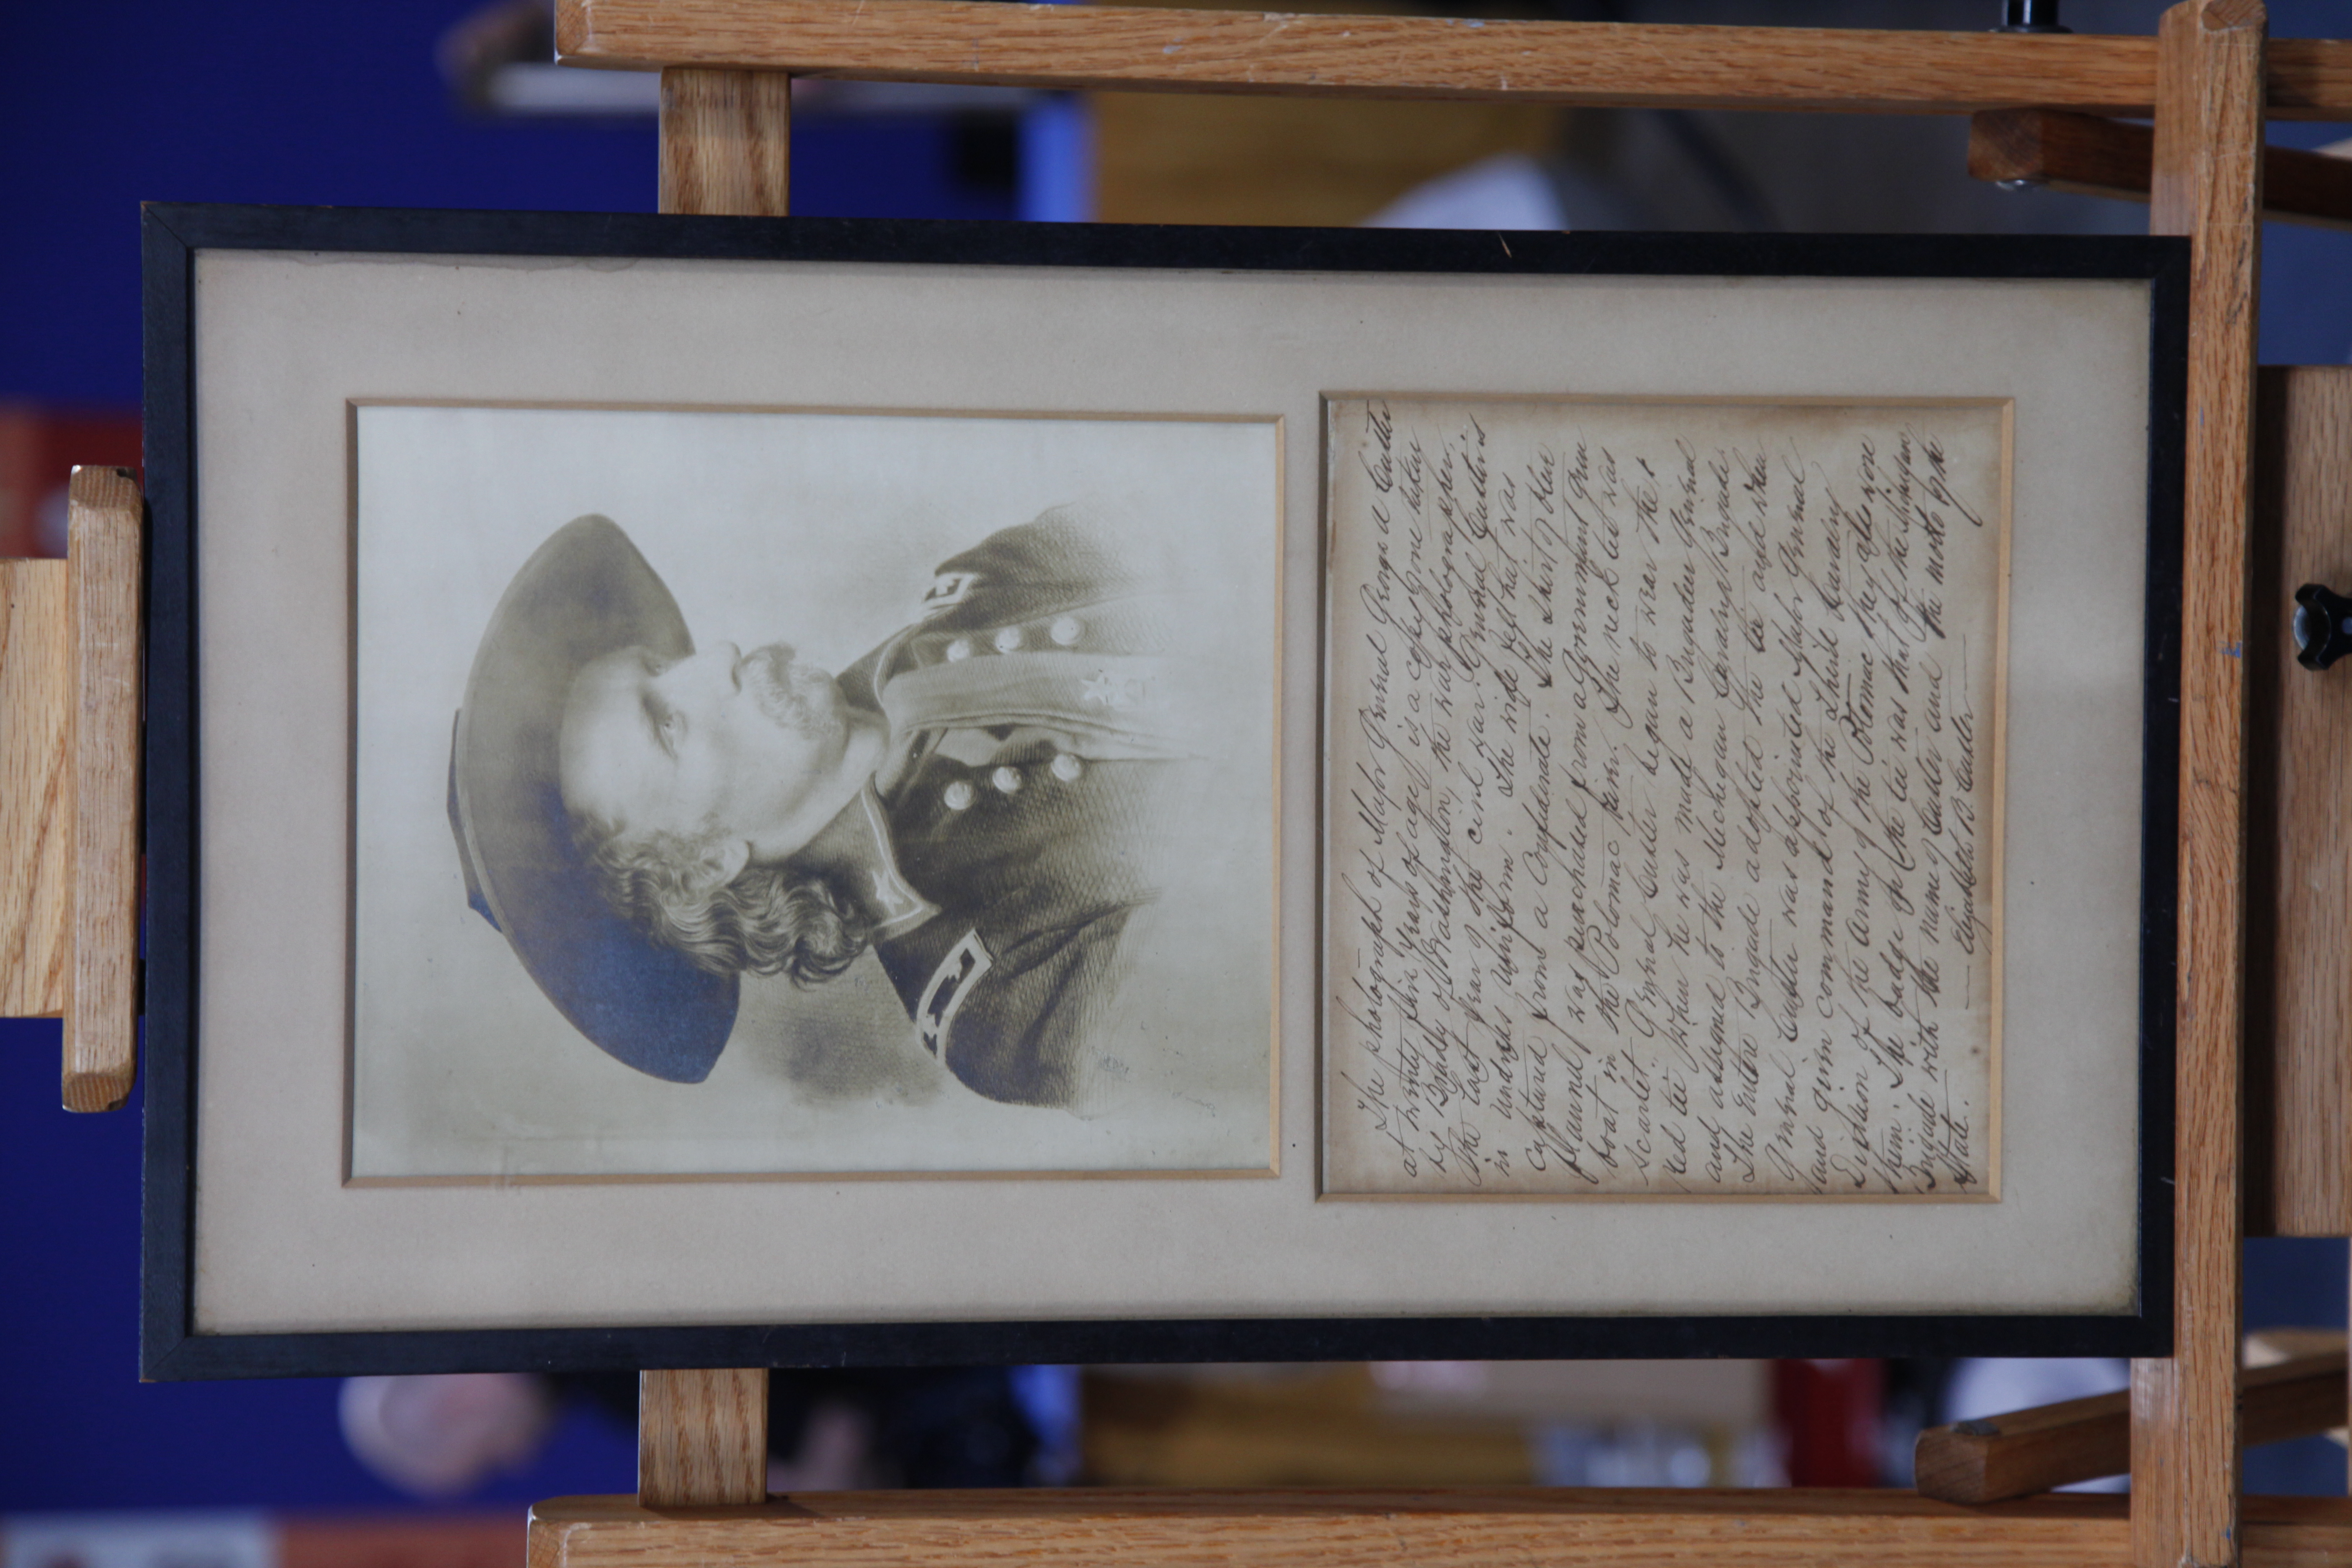 The photograph of Major General George A Custer
at twenty five years of age, is a copy of one taken
by Brady of Washington, the war photographer,
in the last year of the civil war. General Custer is
in undress uniform. The wide felt hat was
captured from a Confederate. The shirt of blue
flannel was purchased from a Government gun
boat in the Potomac river. The neck tie was
scarlet. General Custer began to wear the
red tie when he was made a Brigadier General
and assigned to the Michigan Cavalry Brigade.
The entire Brigade adopted the tie and when
General Custer was appointed Major General
and given command of the Third Cavalry
Division of the Army of the Potomac they also wore
them. The badge on the tie was that of the Michigan
Brigade with the name of Custer and the motto of the
State.
Elizabeth B. Custer